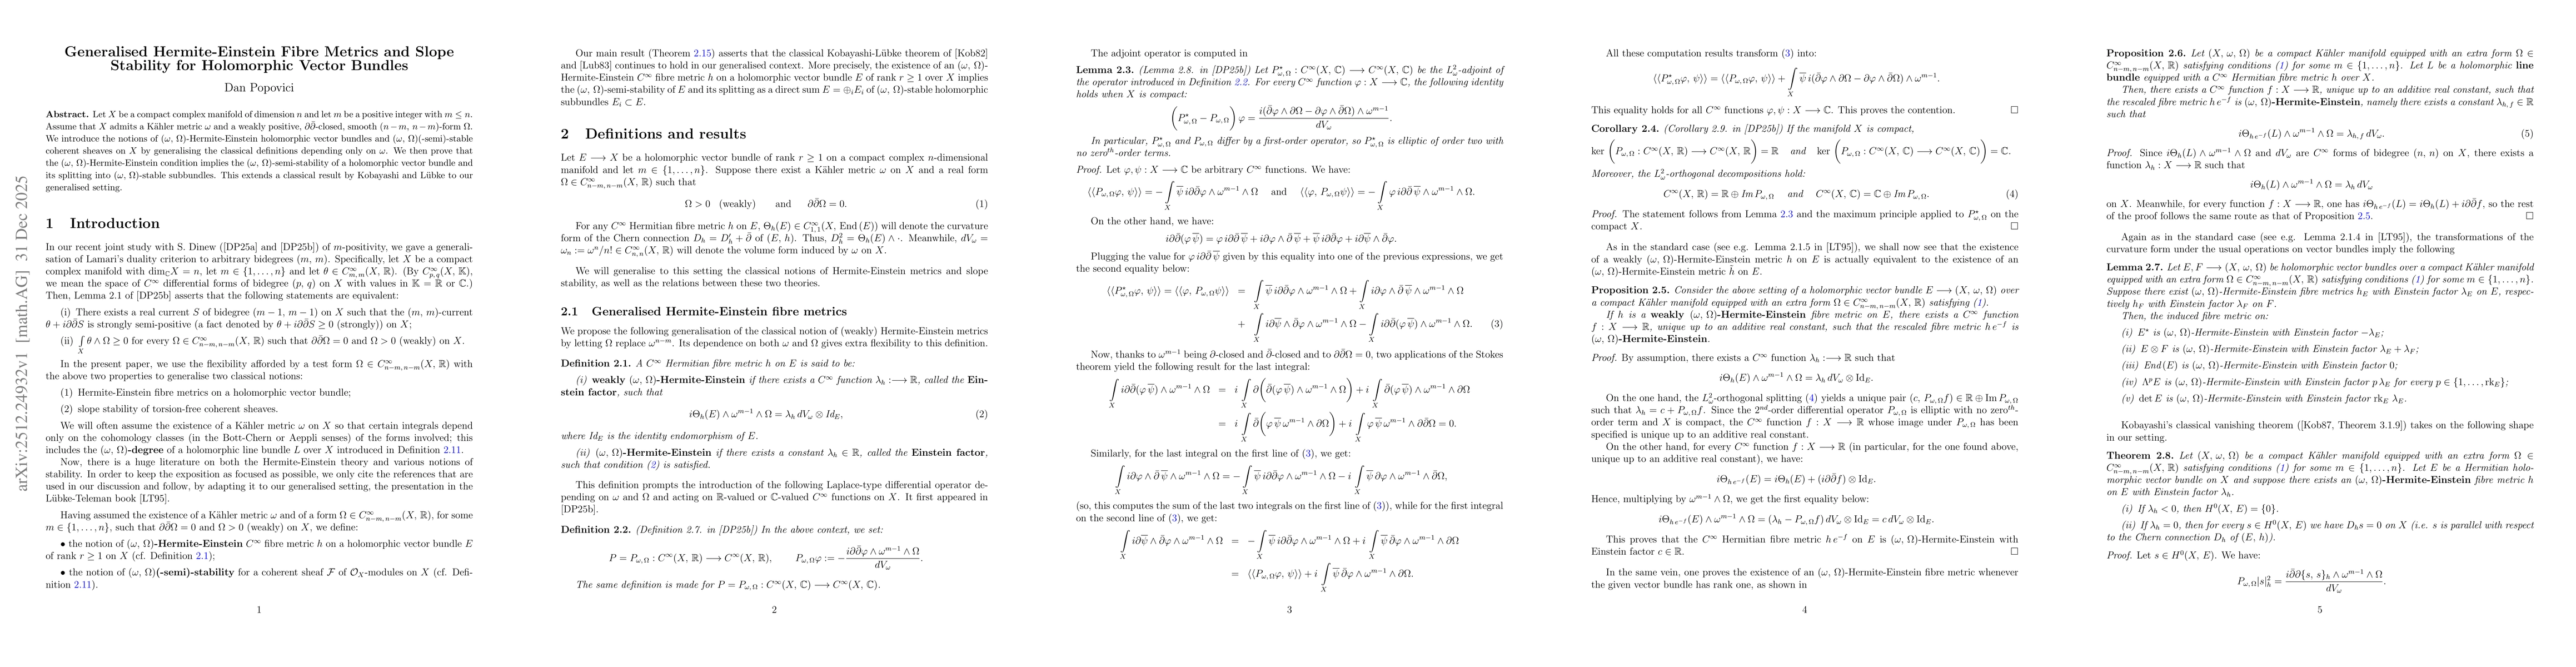 Generalised Hermite-Einstein Fibre Metrics and Slope
Stability for Holomorphic Vector Bundles
Dan Popovici
Abstract. Let X be a compact complex manifold of dimension n and let m be a positive integer with m ≤ n.
Assume that X admits a Kähler metric ω and a weakly positive, ∂∂̄-closed, smooth (n−m, n−m)-form Ω.
We introduce the notions of (ω, Ω)-Hermite-Einstein holomorphic vector bundles and (ω, Ω)(-semi)-stable
coherent sheaves on X by generalising the classical definitions depending only on ω. We then prove that
the (ω, Ω)-Hermite-Einstein condition implies the (ω, Ω)-semi-stability of a holomorphic vector bundle and
its splitting into (ω, Ω)-stable subbundles. This extends a classical result by Kobayashi and Lübke to our
generalised setting.
1 Introduction
In our recent joint study with S. Dinew ([DP25a] and [DP25b]) of m-positivity, we gave a generali-
sation of Lamari's duality criterion to arbitrary bidegrees (m, m). Specifically, let X be a compact
complex manifold with dim_ℂX = n, let m ∈ {1, . . . , n} and let θ ∈ C^∞_{m, m}(X, ℝ). (By C^∞_{p, q}(X, 𝕂),
we mean the space of C^∞ differential forms of bidegree (p, q) on X with values in 𝕂 = ℝ or ℂ.)
Then, Lemma 2.1 of [DP25b] asserts that the following statements are equivalent:
(i) There exists a real current S of bidegree (m − 1, m − 1) on X such that the (m, m)-current
θ + i∂∂̄S is strongly semi-positive (a fact denoted by θ + i∂∂̄S ≥ 0 (strongly)) on X;
(ii) ∫_X θ ∧ Ω ≥ 0 for every Ω ∈ C^∞_{n−m, n−m}(X, ℝ) such that ∂∂̄Ω = 0 and Ω > 0 (weakly) on X.
In the present paper, we use the flexibility afforded by a test form Ω ∈ C^∞_{n−m, n−m}(X, ℝ) with
the above two properties to generalise two classical notions:
(1) Hermite-Einstein fibre metrics on a holomorphic vector bundle;
(2) slope stability of torsion-free coherent sheaves.
We will often assume the existence of a Kähler metric ω on X so that certain integrals depend
only on the cohomology classes (in the Bott-Chern or Aeppli senses) of the forms involved; this
includes the (ω, Ω)-degree of a holomorphic line bundle L over X introduced in Definition 2.11.
Now, there is a huge literature on both the Hermite-Einstein theory and various notions of
stability. In order to keep the exposition as focused as possible, we only cite the references that are
used in our discussion and follow, by adapting it to our generalised setting, the presentation in the
Lübke-Teleman book [LT95].
Having assumed the existence of a Kähler metric ω and of a form Ω ∈ C^∞_{n−m, n−m}(X, ℝ), for some
m ∈ {1, . . . , n}, such that ∂∂̄Ω = 0 and Ω > 0 (weakly) on X, we define:
• the notion of (ω, Ω)-Hermite-Einstein C^∞ fibre metric h on a holomorphic vector bundle E
of rank r ≥ 1 on X (cf. Definition 2.1);
• the notion of (ω, Ω)(-semi)-stability for a coherent sheaf ℱ of 𝒪_X-modules on X (cf. Defi-
nition 2.11).
1
arXiv:2512.24932v1 [math.AG] 31 Dec 2025
Our main result (Theorem 2.15) asserts that the classical Kobayashi-Lübke theorem of [Kob82]
and [Lub83] continues to hold in our generalised context. More precisely, the existence of an (ω, Ω)-
Hermite-Einstein C^∞ fibre metric h on a holomorphic vector bundle E of rank r ≥ 1 over X implies
the (ω, Ω)-semi-stability of E and its splitting as a direct sum E = ⊕_iE_i of (ω, Ω)-stable holomorphic
subbundles E_i ⊂ E.
2 Definitions and results
Let E ⟶ X be a holomorphic vector bundle of rank r ≥ 1 on a compact complex n-dimensional
manifold and let m ∈ {1, . . . , n}. Suppose there exist a Kähler metric ω on X and a real form
Ω ∈ C^∞_{n−m, n−m}(X, ℝ) such that
Ω > 0 (weakly) and ∂∂̄Ω = 0. (1)
For any C^∞ Hermitian fibre metric h on E, Θ_h(E) ∈ C^∞_{1, 1}(X, End (E)) will denote the curvature
form of the Chern connection D_h = D′_h + ∂̄ of (E, h). Thus, D²_h = Θ_h(E) ∧ ·. Meanwhile, dV_ω =
ω_n := ω^n/n! ∈ C^∞_{n, n}(X, ℝ) will denote the volume form induced by ω on X.
We will generalise to this setting the classical notions of Hermite-Einstein metrics and slope
stability, as well as the relations between these two theories.
2.1 Generalised Hermite-Einstein fibre metrics
We propose the following generalisation of the classical notion of (weakly) Hermite-Einstein metrics
by letting Ω replace ω^{n−m}. Its dependence on both ω and Ω gives extra flexibility to this definition.
Definition 2.1. A C^∞ Hermitian fibre metric h on E is said to be:
(i) weakly (ω, Ω)-Hermite-Einstein if there exists a C^∞ function λ_h :⟶ ℝ, called the Ein-
stein factor, such that
iΘ_h(E) ∧ ω^{m−1} ∧ Ω = λ_h dV_ω ⊗ Id_E, (2)
where Id_E is the identity endomorphism of E.
(ii) (ω, Ω)-Hermite-Einstein if there exists a constant λ_h ∈ ℝ, called the Einstein factor,
such that condition (2) is satisfied.
This definition prompts the introduction of the following Laplace-type differential operator de-
pending on ω and Ω and acting on ℝ-valued or ℂ-valued C^∞ functions on X. It first appeared in
[DP25b].
Definition 2.2. (Definition 2.7. in [DP25b]) In the above context, we set:
P = P_{ω, Ω} : C^∞(X, ℝ) ⟶ C^∞(X, ℝ), P_{ω, Ω}φ := − i∂∂̄φ ∧ ω^{m−1} ∧ Ω / dV_ω.
The same definition is made for P = P_{ω, Ω} : C^∞(X, ℂ) ⟶ C^∞(X, ℂ).
2
The adjoint operator is computed in
Lemma 2.3. (Lemma 2.8. in [DP25b]) Let P^⋆_{ω, Ω} : C^∞(X, ℂ) ⟶ C^∞(X, ℂ) be the L²_ω-adjoint of
the operator introduced in Definition 2.2. For every C^∞ function φ : X ⟶ ℂ, the following identity
holds when X is compact:
(P^⋆_{ω, Ω} − P_{ω, Ω}) φ = i(∂̄φ ∧ ∂Ω − ∂φ ∧ ∂̄Ω) ∧ ω^{m−1} / dV_ω.
In particular, P^⋆_{ω, Ω} and P_{ω, Ω} differ by a first-order operator, so P^⋆_{ω, Ω} is elliptic of order two with
no zero^{th}-order terms.
Proof. Let φ, ψ : X ⟶ ℂ be arbitrary C^∞ functions. We have:
⟨⟨P_{ω, Ω}φ, ψ⟩⟩ = − ∫_X ψ̄ i∂∂̄φ ∧ ω^{m−1} ∧ Ω and ⟨⟨φ, P_{ω, Ω}ψ⟩⟩ = − ∫_X φ i∂∂̄ψ̄ ∧ ω^{m−1} ∧ Ω.
On the other hand, we have:
i∂∂̄(φ ψ̄) = φ i∂∂̄ψ̄ + i∂φ ∧ ∂̄ψ̄ + ψ̄ i∂∂̄φ + i∂ψ̄ ∧ ∂̄φ.
Plugging the value for φ i∂∂̄ψ̄ given by this equality into one of the previous expressions, we get
the second equality below:
⟨⟨P^⋆_{ω, Ω}φ, ψ⟩⟩ = ⟨⟨φ, P_{ω, Ω}ψ⟩⟩ = ∫_X ψ̄ i∂∂̄φ ∧ ω^{m−1} ∧ Ω + ∫_X i∂φ ∧ ∂̄ψ̄ ∧ ω^{m−1} ∧ Ω
+ ∫_X i∂ψ̄ ∧ ∂̄φ ∧ ω^{m−1} ∧ Ω − ∫_X i∂∂̄(φ ψ̄) ∧ ω^{m−1} ∧ Ω. (3)
Now, thanks to ω^{m−1} being ∂-closed and ∂̄-closed and to ∂∂̄Ω = 0, two applications of the Stokes
theorem yield the following result for the last integral:
∫_X i∂∂̄(φ ψ̄) ∧ ω^{m−1} ∧ Ω = i ∫_X ∂(∂̄(φ ψ̄) ∧ ω^{m−1} ∧ Ω) + i ∫_X ∂̄(φ ψ̄) ∧ ω^{m−1} ∧ ∂Ω
= i ∫_X ∂̄(φ ψ̄ ω^{m−1} ∧ ∂Ω) + i ∫_X φ ψ̄ ω^{m−1} ∧ ∂∂̄Ω = 0.
Similarly, for the last integral on the first line of (3), we get:
∫_X i∂φ ∧ ∂̄ψ̄ ∧ ω^{m−1} ∧ Ω = − ∫_X ψ̄ i∂∂̄φ ∧ ω^{m−1} ∧ Ω − i ∫_X ψ̄ ∂φ ∧ ω^{m−1} ∧ ∂̄Ω,
(so, this computes the sum of the last two integrals on the first line of (3)), while for the first integral
on the second line of (3), we get:
∫_X i∂ψ̄ ∧ ∂̄φ ∧ ω^{m−1} ∧ Ω = − ∫_X ψ̄ i∂∂̄φ ∧ ω^{m−1} ∧ Ω + i ∫_X ψ̄ ∂̄φ ∧ ω^{m−1} ∧ ∂Ω
= ⟨⟨P_{ω, Ω}φ, ψ⟩⟩ + i ∫_X ψ̄ ∂̄φ ∧ ω^{m−1} ∧ ∂Ω.
3
All these computation results transform (3) into:
⟨⟨P^⋆_{ω, Ω}φ, ψ⟩⟩ = ⟨⟨P_{ω, Ω}φ, ψ⟩⟩ + ∫_X ψ̄ i(∂̄φ ∧ ∂Ω − ∂φ ∧ ∂̄Ω) ∧ ω^{m−1}.
This equality holds for all C^∞ functions φ, ψ : X ⟶ ℂ. This proves the contention. □
Corollary 2.4. (Corollary 2.9. in [DP25b]) If the manifold X is compact,
ker (P_{ω, Ω} : C^∞(X, ℝ) ⟶ C^∞(X, ℝ)) = ℝ and ker (P_{ω, Ω} : C^∞(X, ℂ) ⟶ C^∞(X, ℂ)) = ℂ.
Moreover, the L²_ω-orthogonal decompositions hold:
C^∞(X, ℝ) = ℝ ⊕ Im P_{ω, Ω} and C^∞(X, ℂ) = ℂ ⊕ Im P_{ω, Ω}. (4)
Proof. The statement follows from Lemma 2.3 and the maximum principle applied to P^⋆_{ω, Ω} on the
compact X. □
As in the standard case (see e.g. Lemma 2.1.5 in [LT95]), we shall now see that the existence
of a weakly (ω, Ω)-Hermite-Einstein metric h on E is actually equivalent to the existence of an
(ω, Ω)-Hermite-Einstein metric h̃ on E.
Proposition 2.5. Consider the above setting of a holomorphic vector bundle E ⟶ (X, ω, Ω) over
a compact Kähler manifold equipped with an extra form Ω ∈ C^∞_{n−m, n−m}(X, ℝ) satisfying (1).
If h is a weakly (ω, Ω)-Hermite-Einstein fibre metric on E, there exists a C^∞ function
f : X ⟶ ℝ, unique up to an additive real constant, such that the rescaled fibre metric h e^{−f} is
(ω, Ω)-Hermite-Einstein.
Proof. By assumption, there exists a C^∞ function λ_h :⟶ ℝ such that
iΘ_h(E) ∧ ω^{m−1} ∧ Ω = λ_h dV_ω ⊗ Id_E.
On the one hand, the L²_ω-orthogonal splitting (4) yields a unique pair (c, P_{ω, Ω}f) ∈ ℝ ⊕ Im P_{ω, Ω}
such that λ_h = c + P_{ω, Ω}f. Since the 2^{nd}-order differential operator P_{ω, Ω} is elliptic with no zero^{th}-
order term and X is compact, the C^∞ function f : X ⟶ ℝ whose image under P_{ω, Ω} has been
specified is unique up to an additive real constant.
On the other hand, for every C^∞ function f : X ⟶ ℝ (in particular, for the one found above,
unique up to an additive real constant), we have:
iΘ_{h e^{−f}}(E) = iΘ_h(E) + (i∂∂̄f) ⊗ Id_E.
Hence, multiplying by ω^{m−1} ∧ Ω, we get the first equality below:
iΘ_{h e^{−f}}(E) ∧ ω^{m−1} ∧ Ω = (λ_h − P_{ω, Ω}f) dV_ω ⊗ Id_E = c dV_ω ⊗ Id_E.
This proves that the C^∞ Hermitian fibre metric h e^{−f} on E is (ω, Ω)-Hermite-Einstein with
Einstein factor c ∈ ℝ. □
In the same vein, one proves the existence of an (ω, Ω)-Hermite-Einstein fibre metric whenever
the given vector bundle has rank one, as shown in
4
Proposition 2.6. Let (X, ω, Ω) be a compact Kähler manifold equipped with an extra form Ω ∈
C^∞_{n−m, n−m}(X, ℝ) satisfying conditions (1) for some m ∈ {1, . . . , n}. Let L be a holomorphic line
bundle equipped with a C^∞ Hermitian fibre metric h over X.
Then, there exists a C^∞ function f : X ⟶ ℝ, unique up to an additive real constant, such that
the rescaled fibre metric h e^{−f} is (ω, Ω)-Hermite-Einstein, namely there exists a constant λ_{h, f} ∈ ℝ
such that
iΘ_{h e^{−f}}(L) ∧ ω^{m−1} ∧ Ω = λ_{h, f} dV_ω. (5)
Proof. Since iΘ_h(L) ∧ ω^{m−1} ∧ Ω and dV_ω are C^∞ forms of bidegree (n, n) on X, there exists a
function λ_h : X ⟶ ℝ such that
iΘ_h(L) ∧ ω^{m−1} ∧ Ω = λ_h dV_ω
on X. Meanwhile, for every function f : X ⟶ ℝ, one has iΘ_{h e^{−f}}(L) = iΘ_h(L) + i∂∂̄f, so the rest
of the proof follows the same route as that of Proposition 2.5. □
Again as in the standard case (see e.g. Lemma 2.1.4 in [LT95]), the transformations of the
curvature form under the usual operations on vector bundles imply the following
Lemma 2.7. Let E, F ⟶ (X, ω, Ω) be holomorphic vector bundles over a compact Kähler manifold
equipped with an extra form Ω ∈ C^∞_{n−m, n−m}(X, ℝ) satisfying conditions (1) for some m ∈ {1, . . . , n}.
Suppose there exist (ω, Ω)-Hermite-Einstein fibre metrics h_E with Einstein factor λ_E on E, respec-
tively h_F with Einstein factor λ_F on F.
Then, the induced fibre metric on:
(i) E^⋆ is (ω, Ω)-Hermite-Einstein with Einstein factor −λ_E;
(ii) E ⊗ F is (ω, Ω)-Hermite-Einstein with Einstein factor λ_E + λ_F;
(iii) End (E) is (ω, Ω)-Hermite-Einstein with Einstein factor 0;
(iv) Λ^pE is (ω, Ω)-Hermite-Einstein with Einstein factor p λ_E for every p ∈ {1, . . . , rk_E};
(v) det E is (ω, Ω)-Hermite-Einstein with Einstein factor rk_E λ_E.
Kobayashi's classical vanishing theorem ([Kob87, Theorem 3.1.9]) takes on the following shape
in our setting.
Theorem 2.8. Let (X, ω, Ω) be a compact Kähler manifold equipped with an extra form Ω ∈
C^∞_{n−m, n−m}(X, ℝ) satisfying conditions (1) for some m ∈ {1, . . . , n}. Let E be a Hermitian holo-
morphic vector bundle on X and suppose there exists an (ω, Ω)-Hermite-Einstein fibre metric h
on E with Einstein factor λ_h.
(i) If λ_h < 0, then H⁰(X, E) = {0}.
(ii) If λ_h = 0, then for every s ∈ H⁰(X, E) we have D_hs = 0 on X (i.e. s is parallel with respect
to the Chern connection D_h of (E, h)).
Proof. Let s ∈ H⁰(X, E). We have:
P_{ω, Ω}|s|²_h = i∂̄∂{s, s}_h ∧ ω^{m−1} ∧ Ω / dV_ω.
5